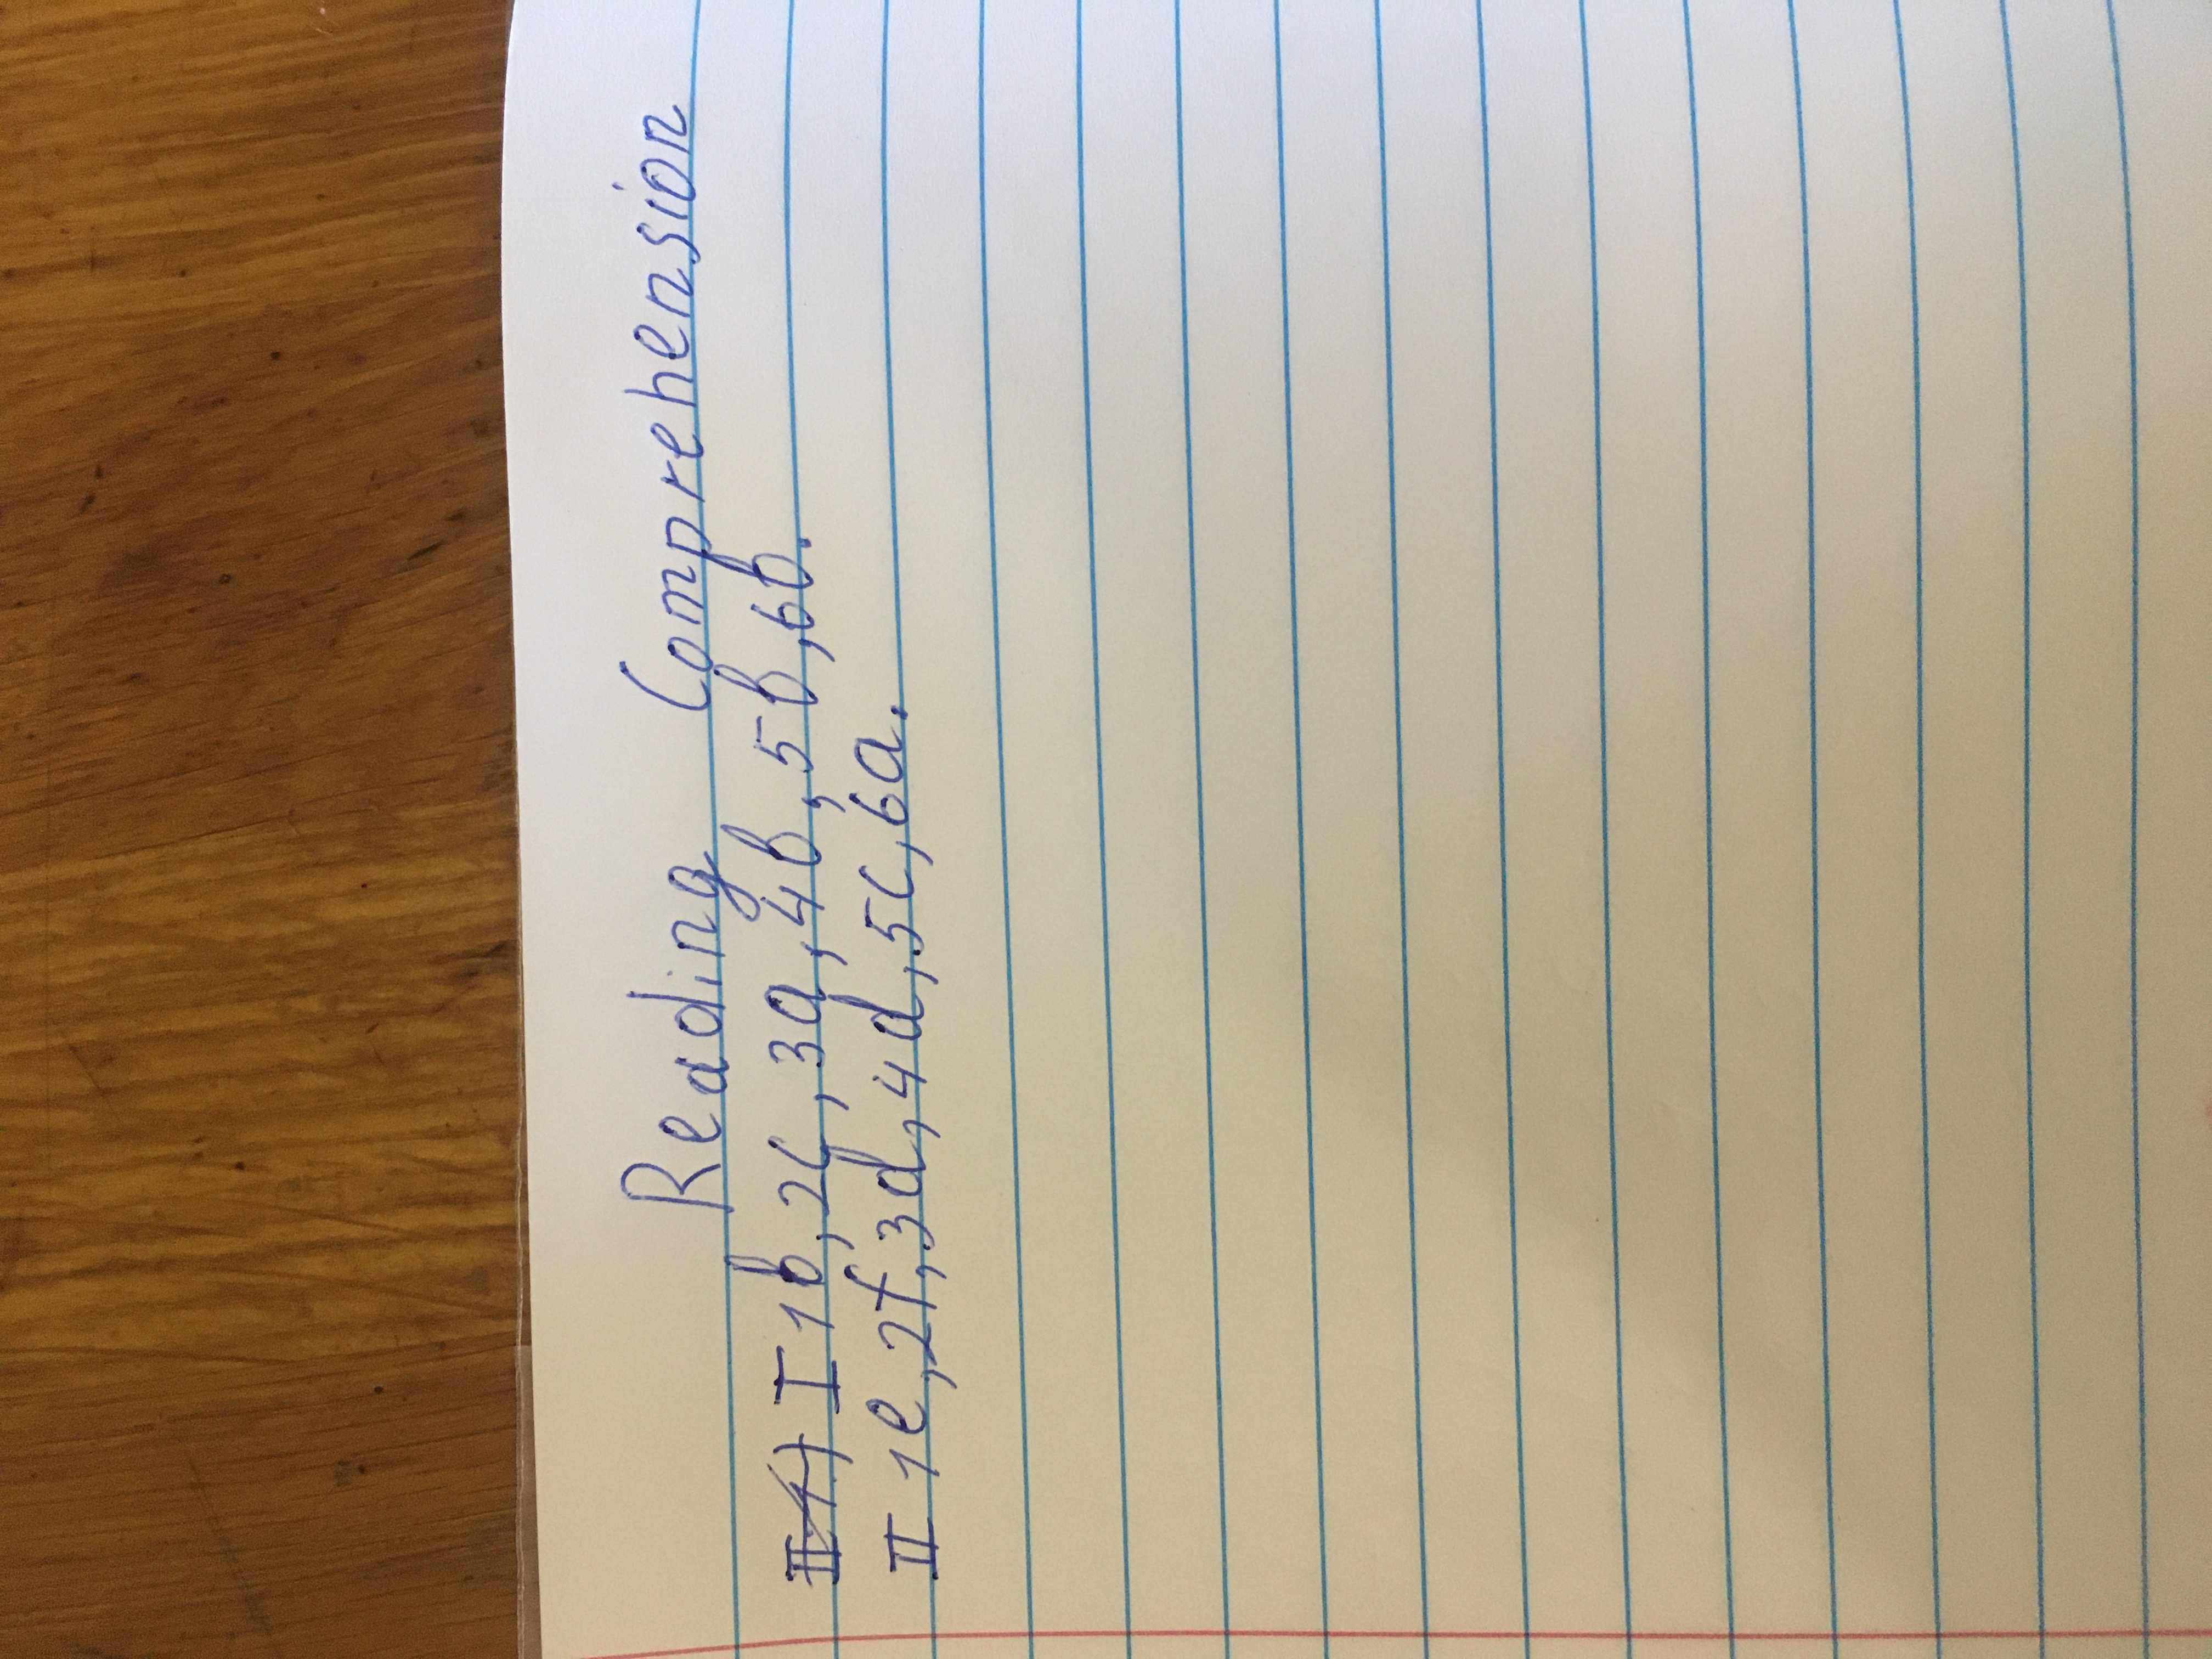 Reading Comprehension
II 1) I 1b, 2c, 3a, 4b, 5b, 6b.
II 1e, 2f, 3d, 4d, 5c, 6a.